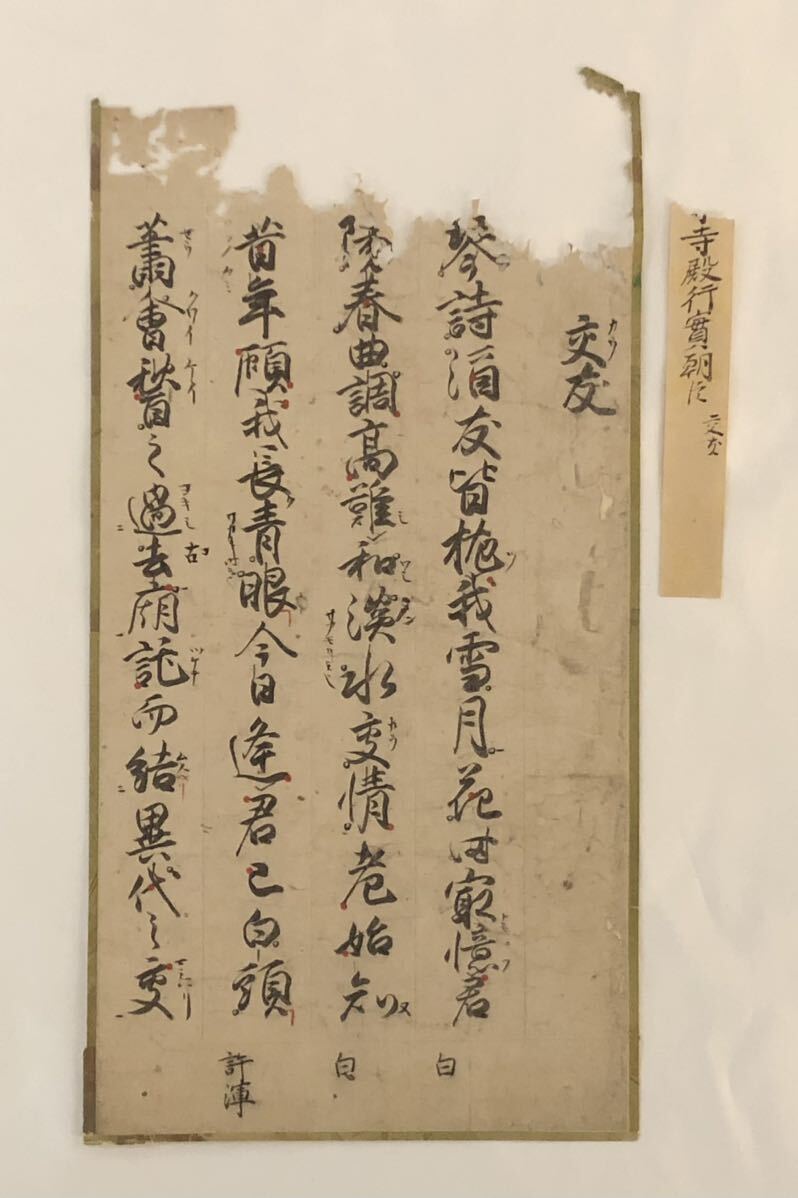 寺殿行實朝臣 交友
交友
琴詩酒友皆抛我雪月花時㝡憶君 白
陽春曲調高難和淡水交情老始知 白
昔年顧我長青眼今日逢君已白頭 許渾
蕭會稽之過去廟託而結異代之交
古